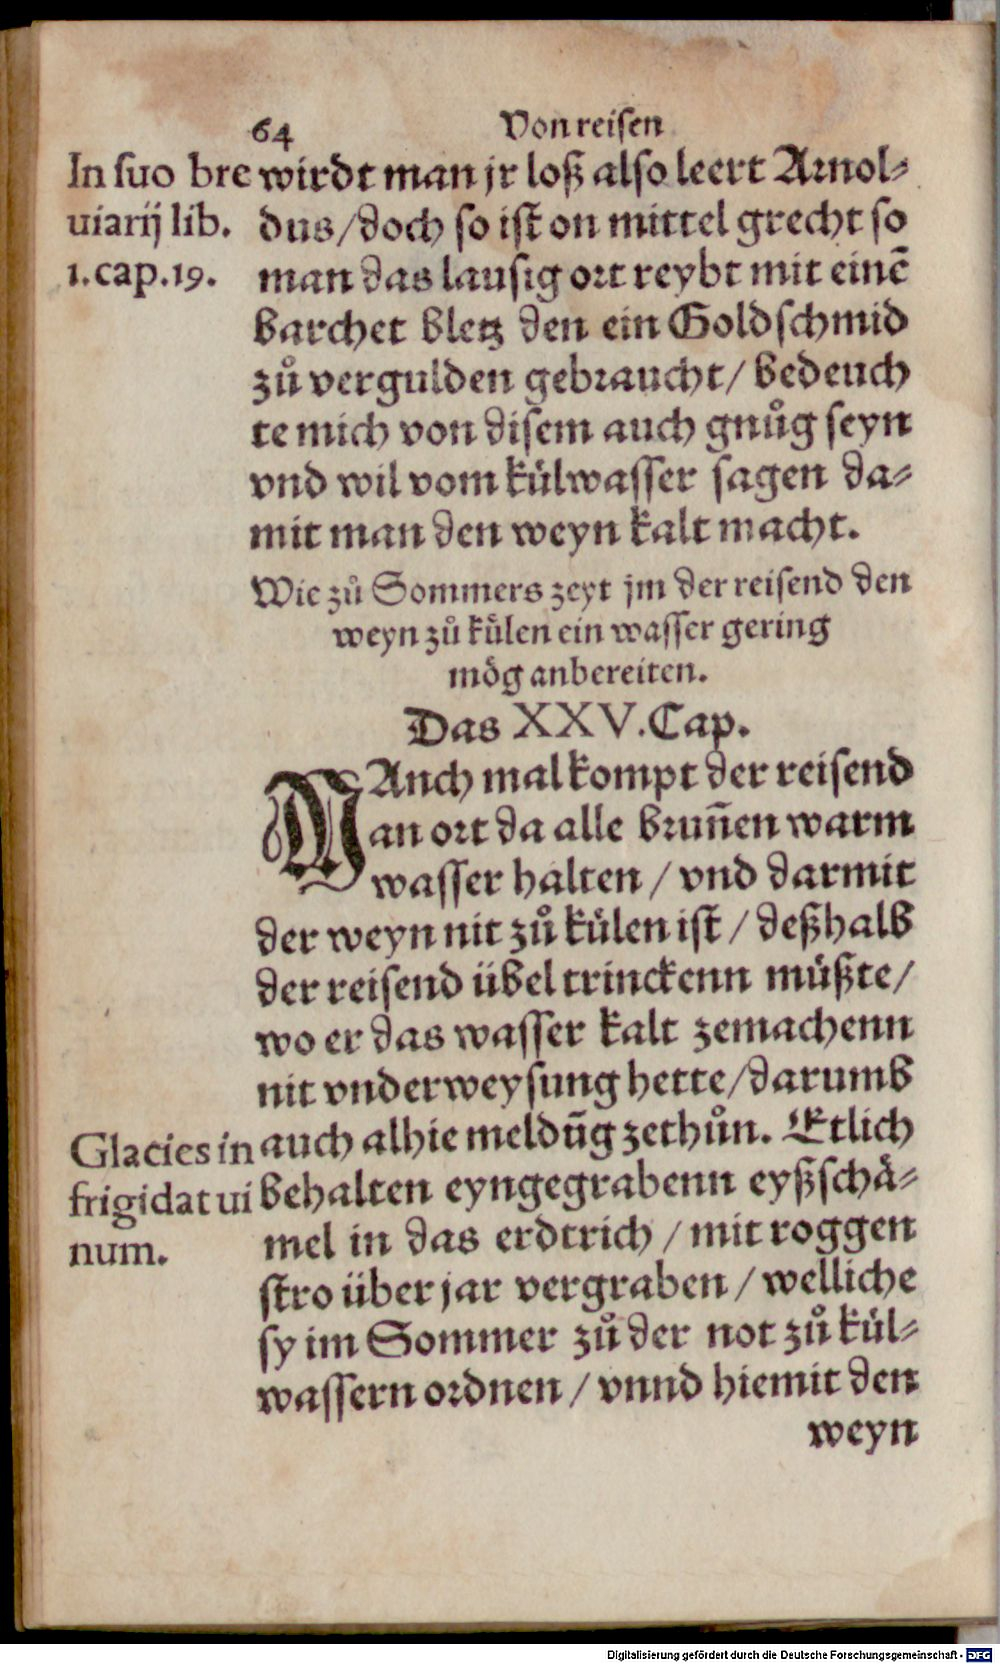 64 Von reisen
In suo bre
uiarij lib.
1. cap. 19.
wirdt man jr loß also leert Arnol⸗
dus / doch so ist on mittel grecht so
man das lausig ort reybt mit einē
barchet bletz den ein Goldschmid
zů vergulden gebraucht / bedeuch
te mich von disem auch gnůg seyn
vnd wil vom külwasser sagen da⸗
mit man den weyn kalt macht.
Wie zů Sommers zeyt jm der reisend den
weyn zů külen ein wasser gering
mög anbereiten.
Das XXV. Cap.
MAnch mal kompt der reisend
an ort da alle brun̄en warm
wasser halten / vnd darmit
der weyn nit zů külen ist / deßhalb
der reisend übel trinckenn müßte /
wo er das wasser kalt zemachenn
nit vnderweysung hette / darumb
auch alhie meldūg zethůn. Etlich
behalten eyngegrabenn eyßschä⸗
mel in das erdtrich / mit roggen
stro über jar vergraben / welliche
sy im Sommer zů der not zů kül⸗
wassern ordnen / vnnd hiemit den
weyn
Glacies in
frigidat ui
num.
Digitalisierung gefördert durch die Deutsche Forschungsgemeinschaft - DFG